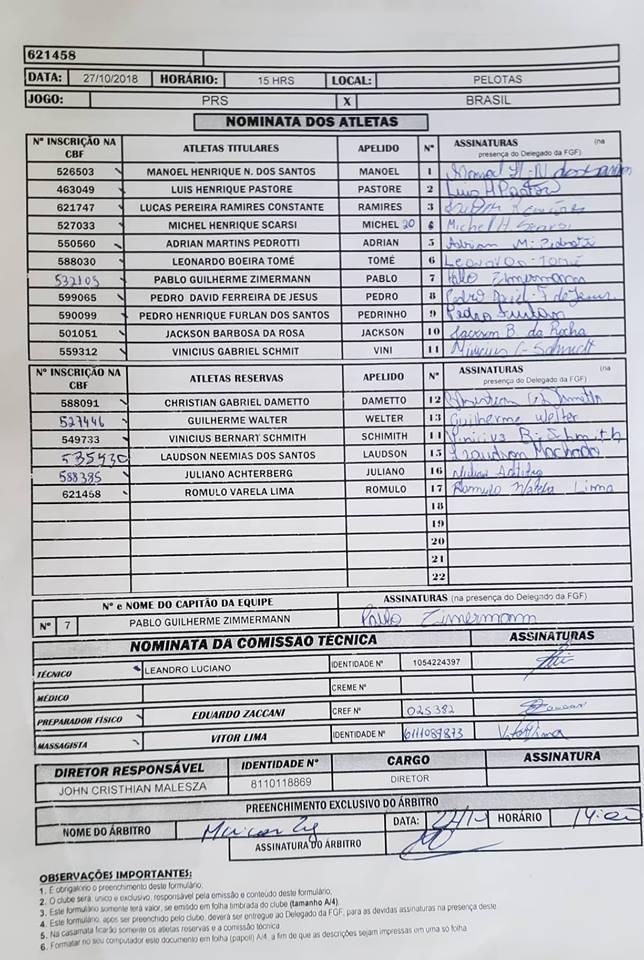 621458
DATA: 27/10/2018 HORÁRIO: 15 HRS LOCAL: PELOTAS
JOGO: PRS X BRASIL
NOMINATA DOS ATLETAS
Nº INSCRIÇÃO NA CBF ATLETAS TITULARES APELIDO Nº ASSINATURAS (na presença do Delegado da FGF)
526503 MANOEL HENRIQUE N. DOS SANTOS MANOEL 1 Manoel H. N. dos Santos
463049 LUIS HENRIQUE PASTORE PASTORE 2 Luis H Pastore
621747 LUCAS PEREIRA RAMIRES CONSTANTE RAMIRES 3
527033 MICHEL HENRIQUE SCARSI MICHEL 20 6 Michel H. Scarsi
550560 ADRIAN MARTINS PEDROTTI ADRIAN 5 Adrian M. Pedrotti
588030 LEONARDO BOEIRA TOMÉ TOMÉ 6 Leonardo Tomé
532105 PABLO GUILHERME ZIMERMANN PABLO 7 Pablo Zimermann
599065 PEDRO DAVID FERREIRA DE JESUS PEDRO 8 Pedro David F. de Jesus
590099 PEDRO HENRIQUE FURLAN DOS SANTOS PEDRINHO 9 Pedro Furlan
501051 JACKSON BARBOSA DA ROSA JACKSON 10 Jackson B. da Rocha
559312 VINICIUS GABRIEL SCHMIT VINI 11 Vinicius G. Schmidt
Nº INSCRIÇÃO NA CBF ATLETAS RESERVAS APELIDO Nº ASSINATURAS (na presença do Delegado da FGF)
588091 CHRISTIAN GABRIEL DAMETTO DAMETTO 12 Dametto
527446 GUILHERME WALTER WELTER 13 Guilherme Welter
549733 VINICIUS BERNART SCHMITH SCHIMITH 14 Vinicius B. Schmith
535430 LAUDSON NEEMIAS DOS SANTOS LAUDSON 15 Laudson Machado
588385 JULIANO ACHTERBERG JULIANO 16
621458 ROMULO VARELA LIMA ROMULO 17 Romulo Varela Lima
18
19
20
21
22
Nº e NOME DO CAPITÃO DA EQUIPE ASSINATURAS (na presença do Delegado da FGF)
Nº 7 PABLO GUILHERME ZIMMERMANN Pablo Zimermann
NOMINATA DA COMISSÃO TÉCNICA ASSINATURAS
TÉCNICO LEANDRO LUCIANO IDENTIDADE Nº 1054224397
MÉDICO CREME Nº
PREPARADOR FÍSICO EDUARDO ZACCANI CREF Nº 025382 Zaccani
MASSAGISTA VITOR LIMA IDENTIDADE Nº 6111089873 Vitor Lima
DIRETOR RESPONSÁVEL IDENTIDADE Nº CARGO ASSINATURA
JOHN CRISTHIAN MALESZA 8110118869 DIRETOR
PREENCHIMENTO EXCLUSIVO DO ÁRBITRO
NOME DO ÁRBITRO DATA: HORÁRIO 14:00
ASSINATURA DO ÁRBITRO
OBSERVAÇÕES IMPORTANTES:
1. É obrigatório o preenchimento deste formulário;
2. O clube será, único e exclusivo, responsável pela emissão e conteúdo deste formulário;
3. Este formulário somente terá valor, se emitido em folha timbrada do clube (tamanho A/4).
4. Este formulário, após ser preenchido pelo clube, deverá ser entregue ao Delegado da FGF, para as devidas assinaturas na presença deste.
5. Na casamata ficarão somente os atletas reservas e a comissão técnica
6. Formatar no seu computador este documento em folha (papel) A/4, a fim de que as descrições sejam impressas em uma só folha